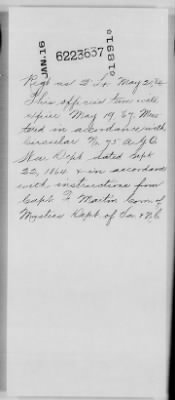 JAN. 16
6223637
1891
Regt as 2 Lt. May 21/64
This officers term will
expire May 19, 67, Mus
tered in accordance with
Circular No 75 A.G.O.
War Dept dated Sept
22, 1864 & in accordance
with instructions from
Capt. Martin Com. of
Mysters Dept of Va & N.C.